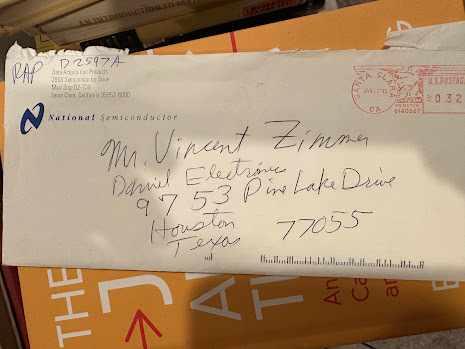 AN INTRODUCTION TO MA
RAP D2597A
Data Acquisition Products
2900 Semiconductor Drive
Mail Stop D2-739
Santa Clara, California 95052-8090
National Semiconductor
SANTA CLARA
CA
U.S. POSTAG
0.32
Mr. Vincent Zimmer
Daniel Electronics
9753 Pine Lake Drive
Houston 77055
Texas
THE
J
A
T
An
Ca
an
E